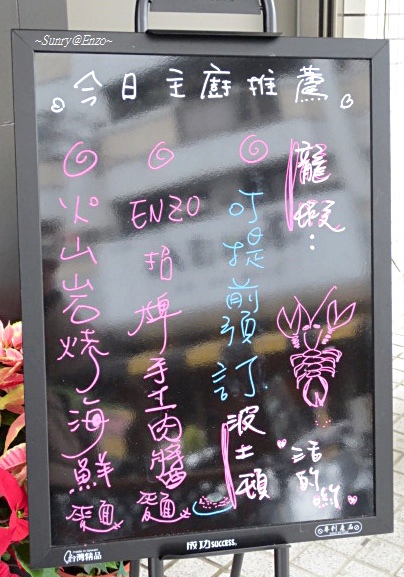 ~Sunry@Enzo~
今日主廚推薦
龍蝦:
活的喲
可提前預訂
波士頓
ENZO招牌手工肉醬麵
火山岩燒海鮮麵
台灣精品
成功 SUCCESS
專利產品